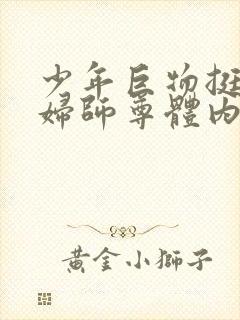 少年巨物挺
婦師尊體內
黃金小獅子